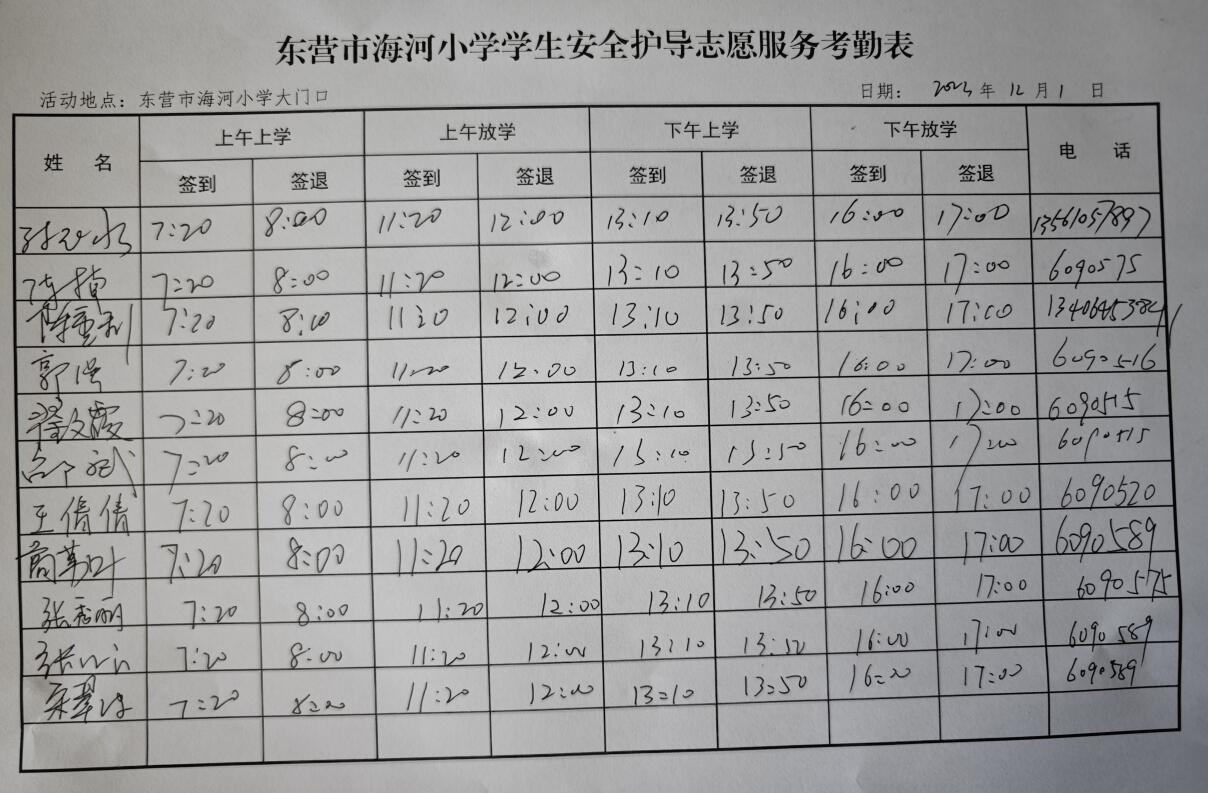 东营市海河小学学生安全护导志愿服务考勤表
活动地点：东营市海河小学大门口 日期： 2023 年 12 月 1 日
姓 名 上午上学 上午放学 下午上学 下午放学 电 话
签到 签退 签到 签退 签到 签退 签到 签退
7:20 8:00 11:20 12:00 13:10 13:50 16:00 17:00 13561057897
7:20 8:00 11:20 12:00 13:10 13:50 16:00 17:00 6090575
7:20 8:00 11:20 12:00 13:10 13:50 16:00 17:00
郭强 7:20 8:00 11:20 12:00 13:10 13:50 16:00 17:00 6090516
翟文霞 7:20 8:00 11:20 12:00 13:10 13:50 16:00 17:00 6090515
7:20 8:00 11:20 12:00 13:10 13:50 16:00 17:00 6090515
王倩倩 7:20 8:00 11:20 12:00 13:10 13:50 16:00 17:00 6090520
7:20 8:00 11:20 12:00 13:10 13:50 16:00 17:00 6090589
张秀丽 7:20 8:00 11:20 12:00 13:10 13:50 16:00 17:00 6090575
7:20 8:00 11:20 12:00 13:10 13:50 16:00 17:00 6090589
7:20 8:00 11:20 12:00 13:10 13:50 16:00 17:00 6090589